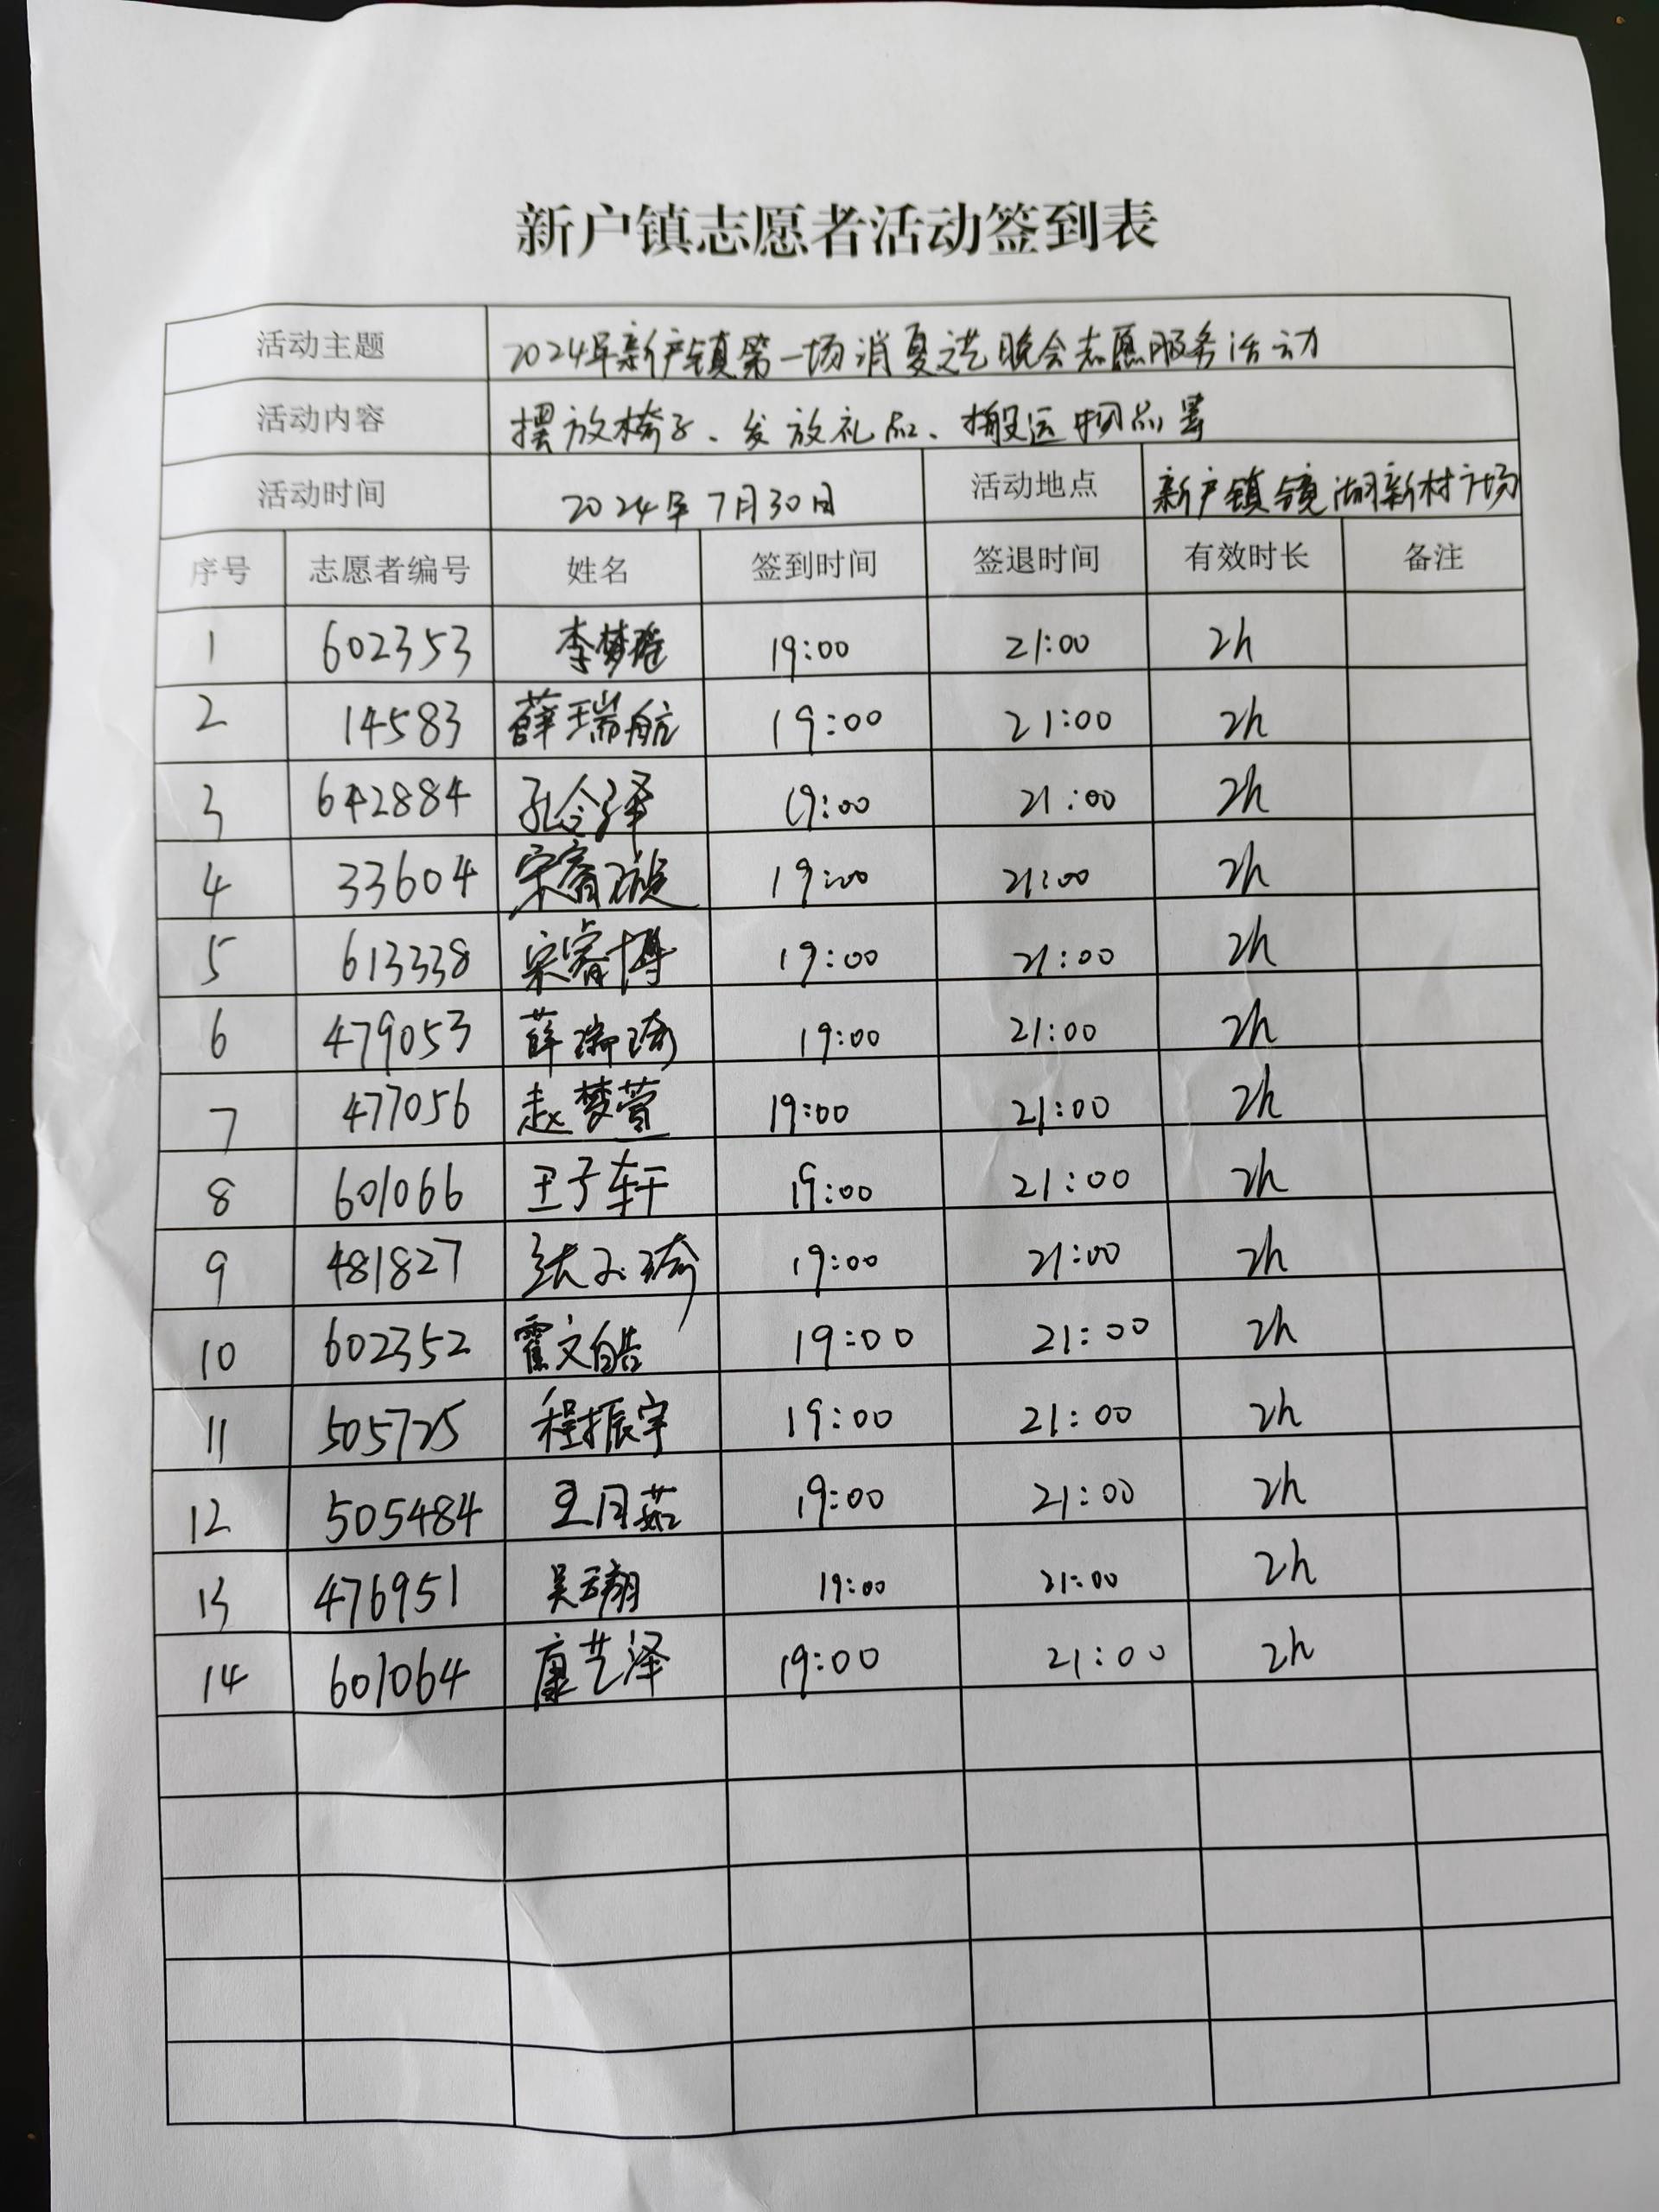 新户镇志愿者活动签到表
活动主题 2024年新户镇第一场消夏文艺晚会志愿服务活动
活动内容 摆放椅子、发放礼品、搬运物品等
活动时间 2024年7月30日 活动地点 新户镇镜湖新村广场
序号 志愿者编号 姓名 签到时间 签退时间 有效时长 备注
1 602353 李梦瑶 19:00 21:00 2h
2 14583 薛瑞航 19:00 21:00 2h
3 642884 孔令泽 19:00 21:00 2h
4 33604 宋睿璇 19:00 21:00 2h
5 613338 宋睿博 19:00 21:00 2h
6 479053 薛瑞琦 19:00 21:00 2h
7 477056 赵梦萱 19:00 21:00 2h
8 601066 王子轩 19:00 21:00 2h
9 481827 19:00 21:00 2h
10 602352 霍文皓 19:00 21:00 2h
11 505725 程振宇 19:00 21:00 2h
12 505484 王月茹 19:00 21:00 2h
13 476951 19:00 21:00 2h
14 601064 康艺泽 19:00 21:00 2h